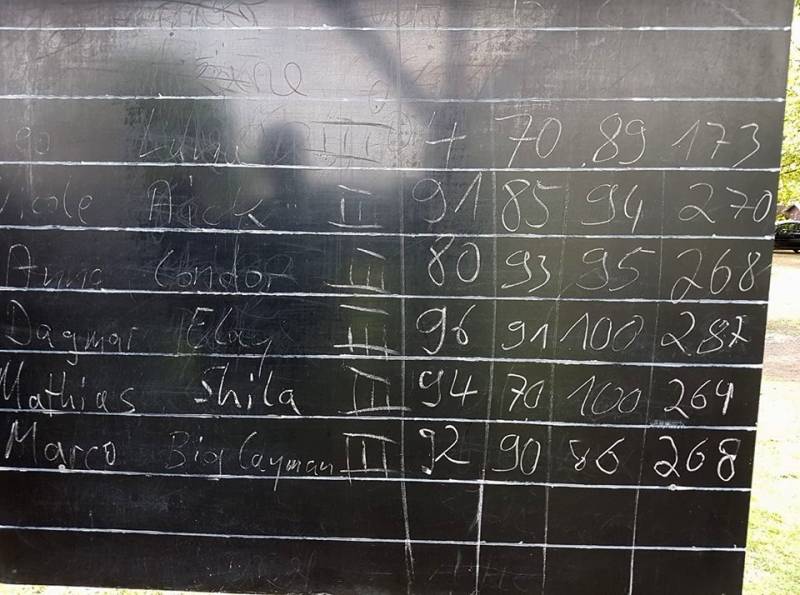 III 4 70 89 173
Aick II 91 85 94 270
Anna Condor III 80 93 95 268
Dagmar Elay III 96 91 100 287
Mathias Shila III 94 70 100 264
Marco Big Cayman III 92 90 86 268